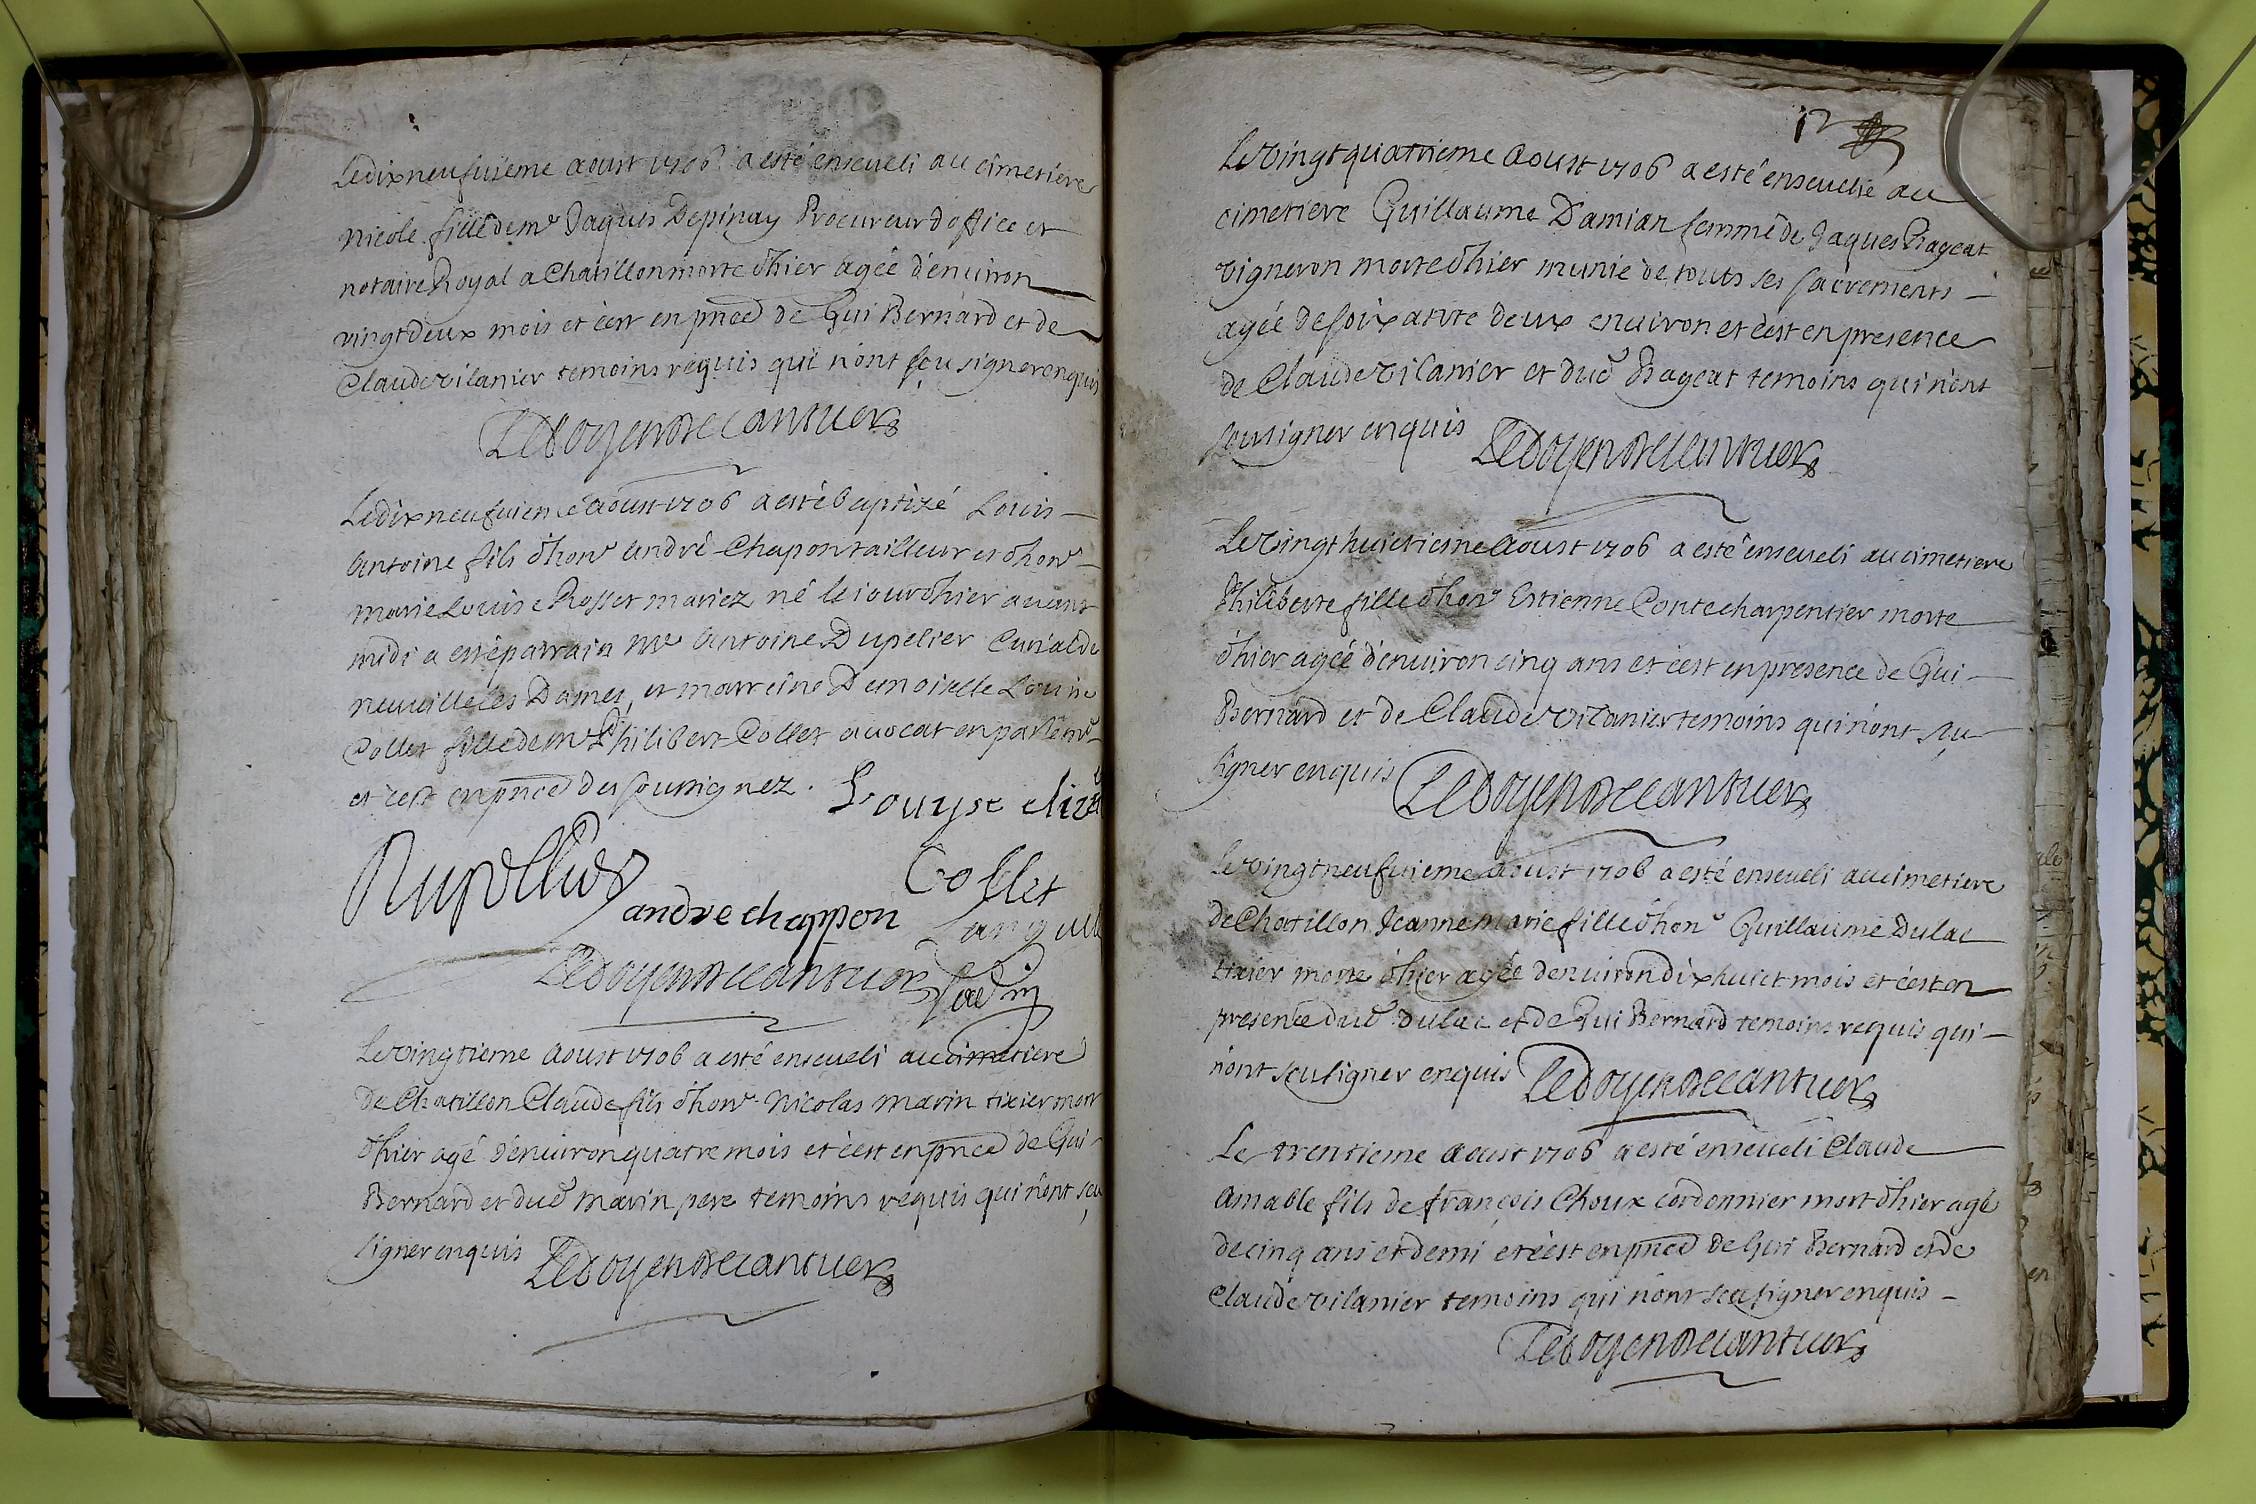 Le dix neufuieme aoust 1706 a esté enseueli au cimetiere
Nicole fille de mr Jaques Depinay Procureur d'office et
notaire Royal a Chatillon morte d'hier agée d'enuiron
vingt deux mois et c'est en pnce de Gui Bernard et de
Claude vilanier temoins requis qui n'ont sçu signer enquis
Ledoyen
Le dix neufuieme aoust 1706 a esté baptizé Louis
Antoine fils d'honr André Chapon tailleur et d'honr
marie Louise Rosset mariez né le iour d'hier auant
midi a esté parrain mr Antoine Dupelier Curial de
neuuille les Dames, et marreine Demoiselle Louise
Collet fille de mr Philibert Collet auocat en parlemt
et c'est en pnce des soussignez. Louyse eliza
Collet
andre chappon
Ledoyen
Le vingtieme aoust 1706 a esté enseueli au cimetiere
de Chatillon Claude fils d'honr Nicolas marin tixier mort
d'hier agé d'enuiron quatre mois et c'est en pnce de Gui
Bernard et dud marin pere temoins requis qui n'ont sçu
signer enquis Ledoyen
12
Le vingt quatrieme aoust 1706 a esté enseuelie au
cimetiere Guillaume Damian femme de Jaques Rageat
vigneron morte d'hier munie de touts ses sacrements
agée de soixante deux enuiron et c'est en presence
de Claude vilanier et dud Rageat temoins qui n'ont
sceu signer enquis Ledoyen
Le vingt huictieme aoust 1706 a esté enseueli au cimetiere
Philiberte fille d'honr Estienne Conte charpentier morte
d'hier agée d'enuiron cinq ans et c'est en presence de Gui
Bernard et de Claude vilanier temoins qui n'ont sçu
signer enquis Ledoyen
Le vingt neufuieme aoust 1706 a esté enseueli au cimetiere
de Chatillon Jeanne marie fille d'honr Guillaume Dulac
tixier morte d'hier agée d'enuiron dix huict mois et c'est en
presence dud dulac et de Gui Bernard temoins requis qui
n'ont sceu signer enquis Ledoyen
Le trentieme aoust 1706 a esté enseueli Claude
Amable fils de françois Choux cordonnier mort d'hier agé
de cinq ans et demi et c'est en pnce de Gui Bernard et de
Claude vilanier temoins qui n'ont sceu signer enquis
Ledoyen